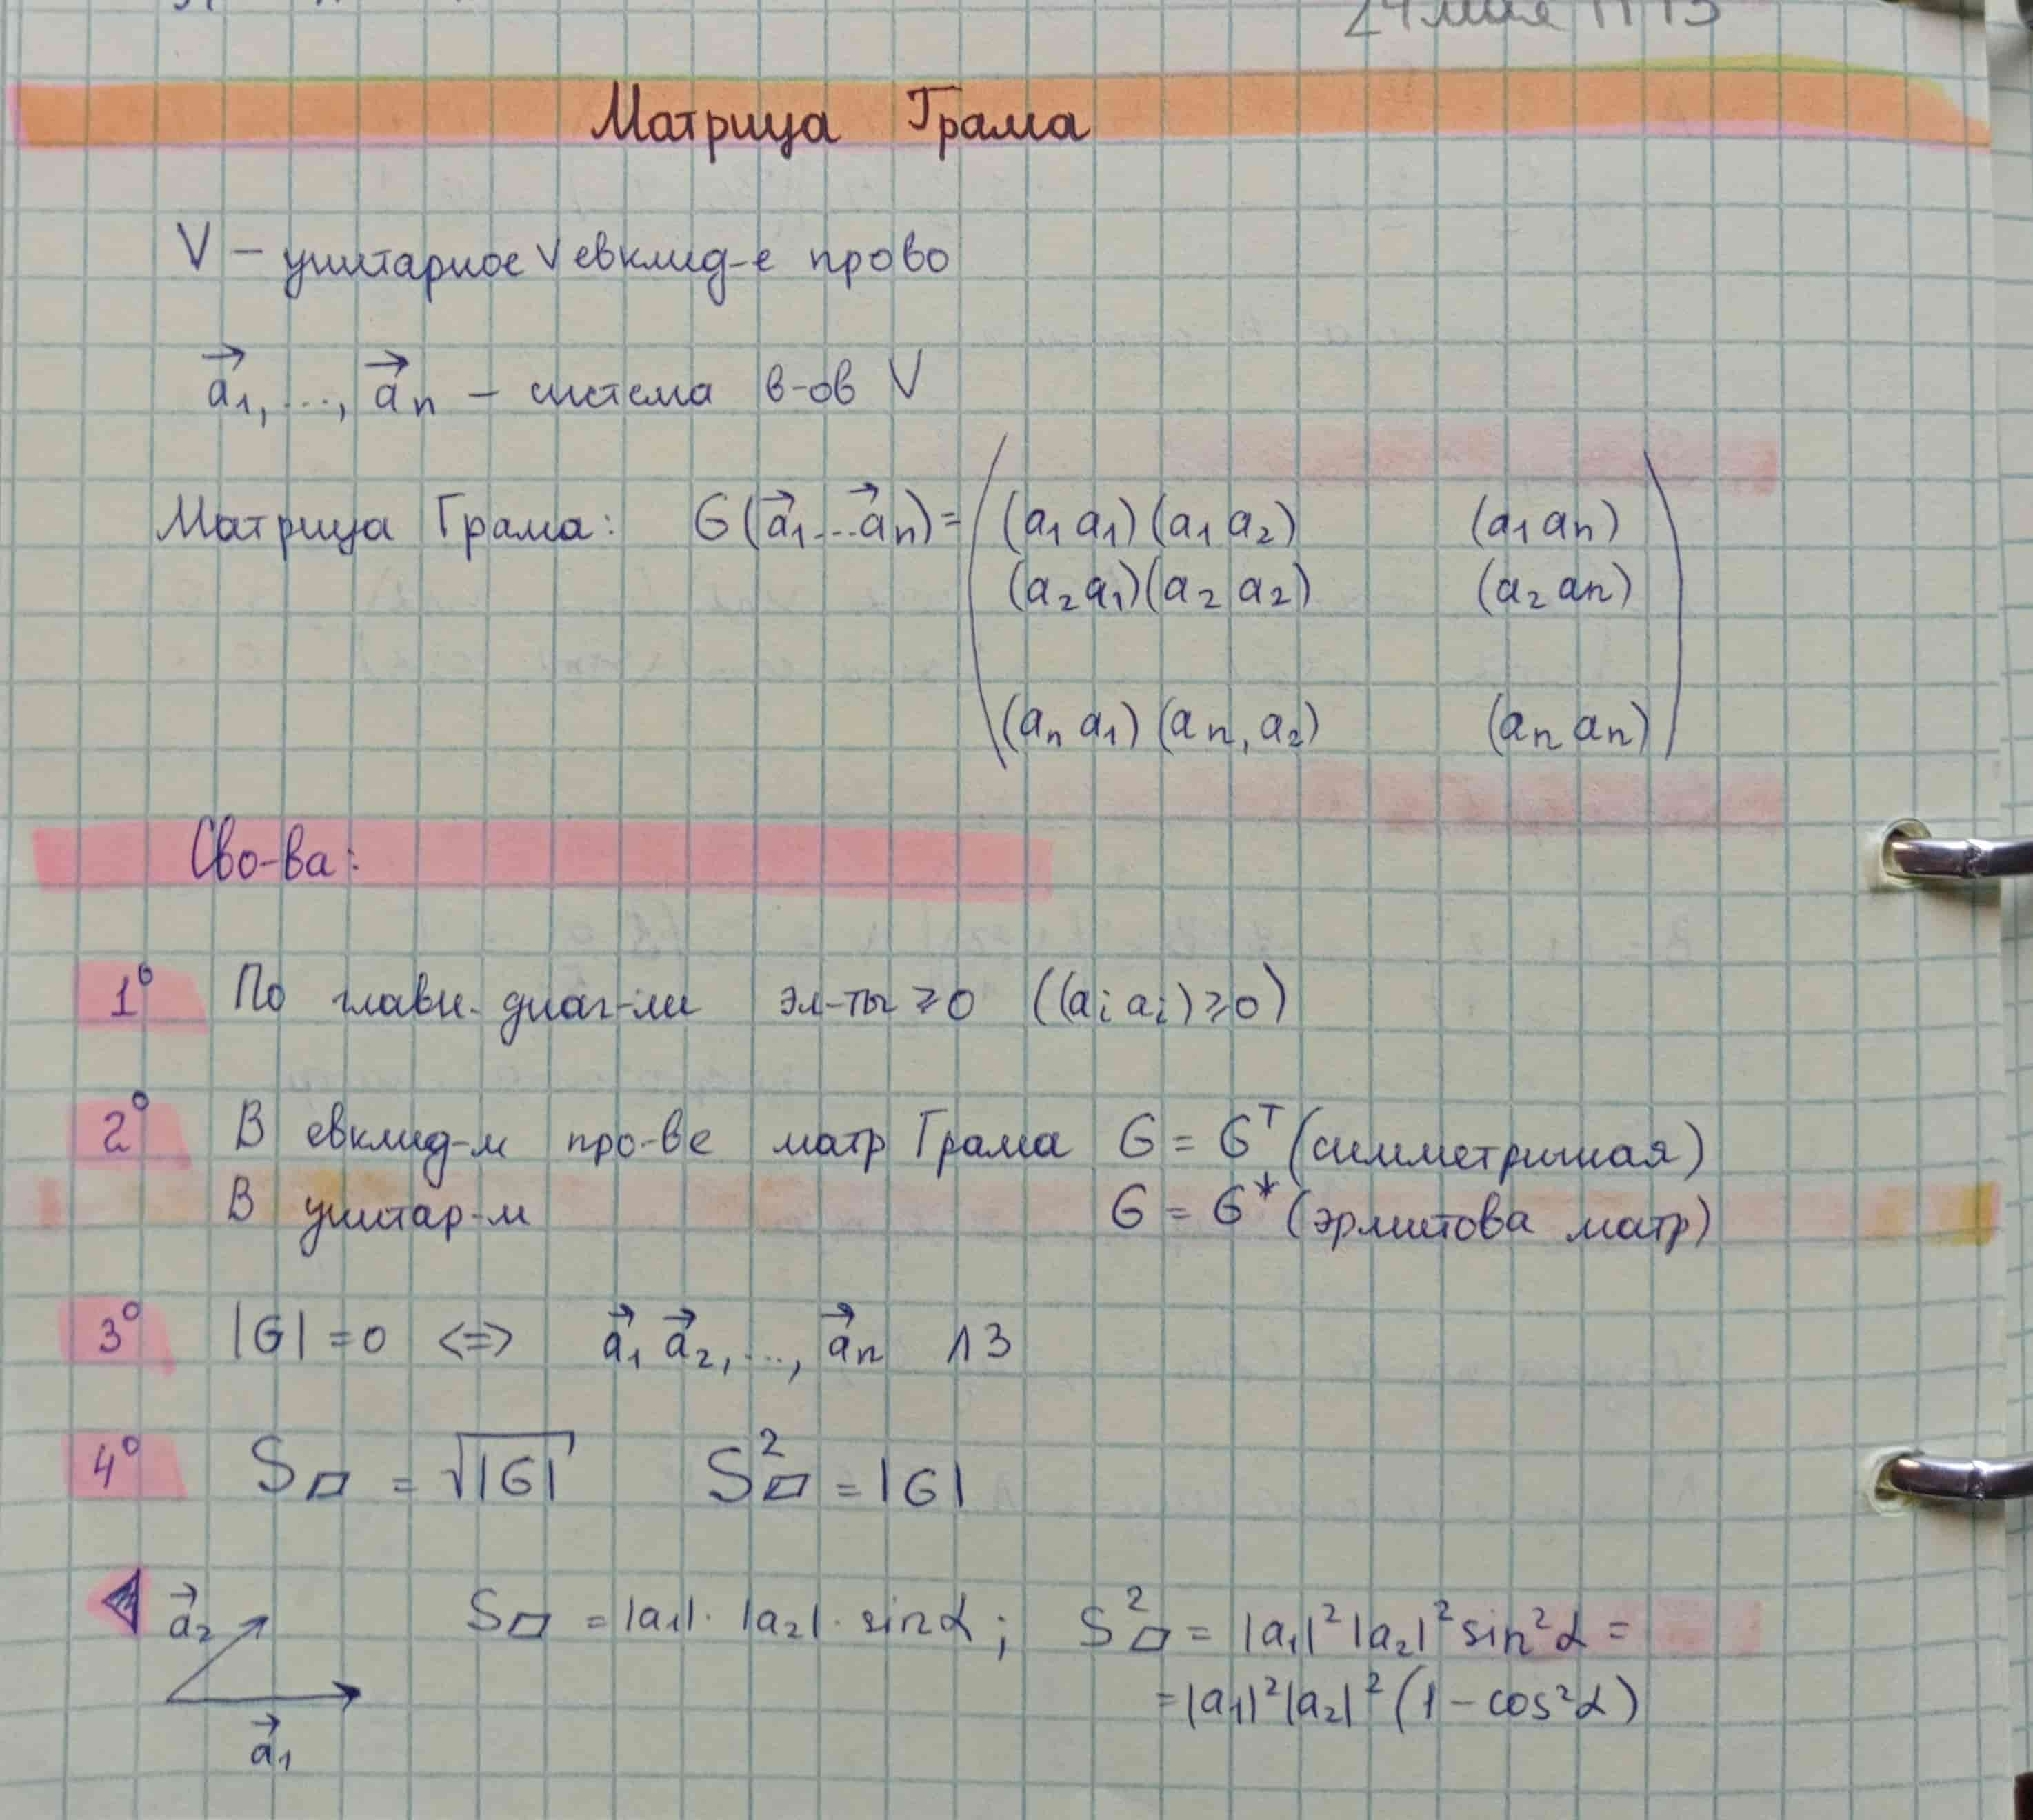 Матрица Грама
V – унитарное ∨ евклид-е прово
a⃗₁, ..., a⃗ₙ – система в-ов V
Матрица Грама: G(a⃗₁...a⃗ₙ) = (a₁ a₁) (a₁ a₂) (a₁ aₙ)
(a₂ a₁) (a₂ a₂) (a₂ aₙ)
(aₙ a₁) (aₙ, a₂) (aₙ aₙ)
Сво-ва:
1° По главн. диаг-ли эл-ты ≥ 0 ((aᵢ aᵢ) ≥ 0)
2° В евклид-м про-ве матр Грама G = Gᵀ (симметричная)
В унитар-м G = G* (эрмитова матр)
3° |G| = 0 <=> a⃗₁ a⃗₂, ..., a⃗ₙ ЛЗ
4° S▱ = √|G| S²▱ = |G|
a⃗₂ S▱ = |a₁| · |a₂| · sin α ; S²▱ = |a₁|² |a₂|² sin² α =
= |a₁|² |a₂|² (1 – cos² α)
a⃗₁